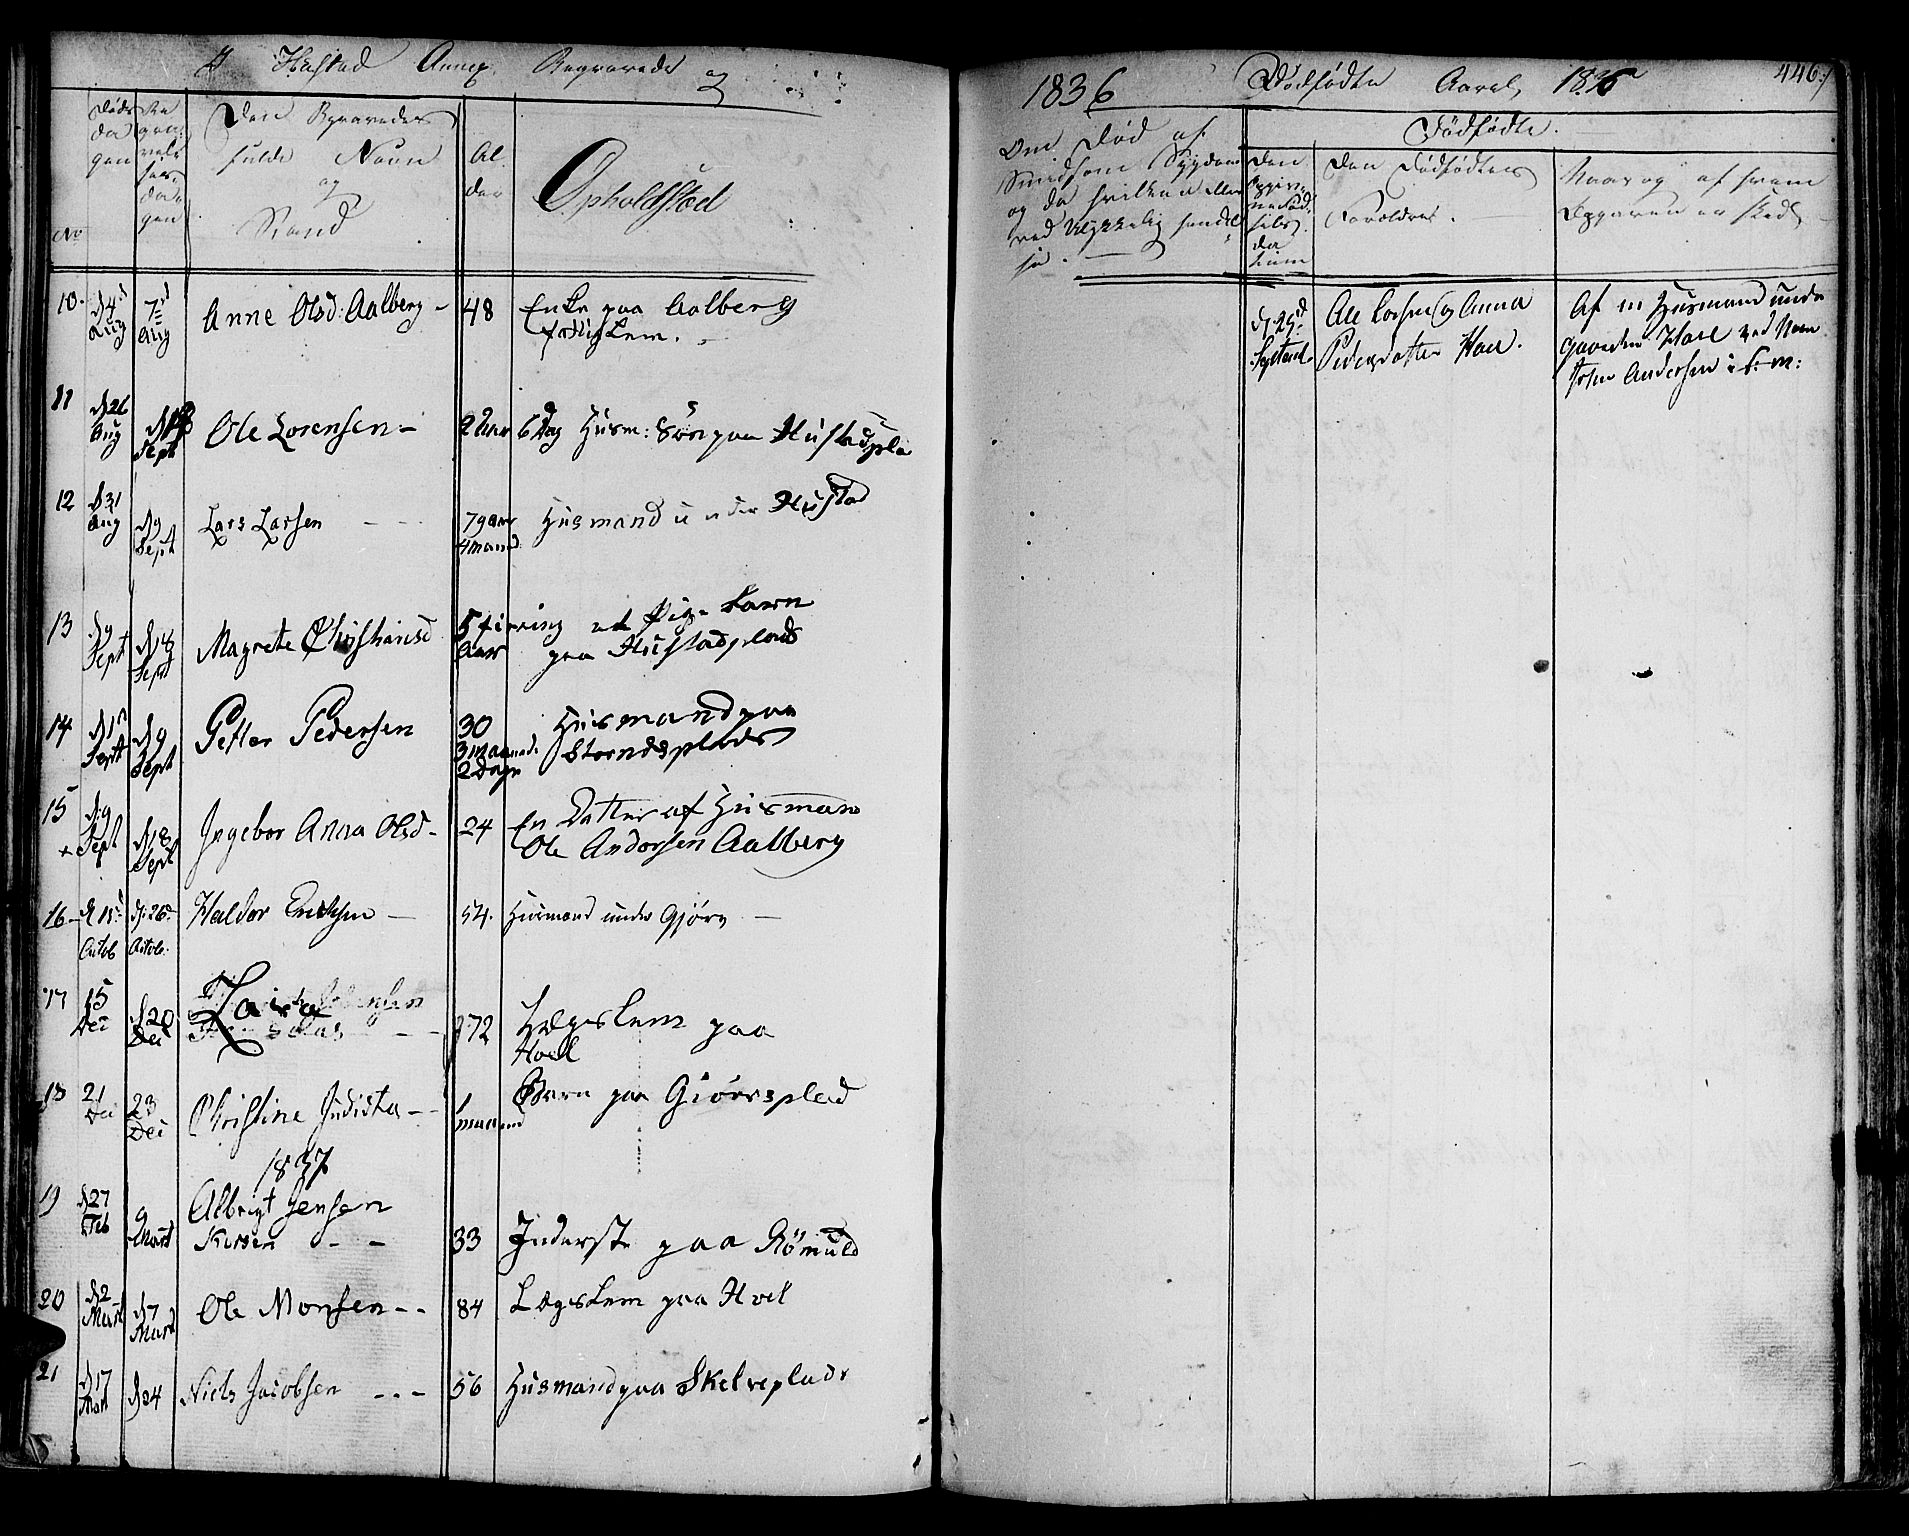 Hustad Annex Begravede og
Døds da gen
Be gra vel ses da gen
Den Begravedes fulde Navn og Stand
Al der
Opholdsted
No
10. d 4d Aug 7d Aug Anne Olsd: Aalberg - 48 Enke paa Aalberg
11 d 26 Aug Sept Ole Lorensen - 2 Aar 6 Dag Husm: Søn paa Hustadpla
12 d 31 Aug d 9 Sept Lars Larsen - - - 79 aar 4 maaned Husmand under Hustad
13 d 9 Sept d 18 Sept Magrete Christiansd 5 firring Aar et Pige barn
paa Hustadplads
14 Sept d 9 Sept Petter Pedersen 30 3 maaned 2 Dage Husmand paa
Storndsplads
15 d 9 Sept d 18 Sept Ingebor Anna Olsd - 24 En Datter af Husman
Ole Andersen Aalberg
16 - d 15d Octob d: 26 Octob. Haldor Ericksen - 54. Husmand under Gjörv -
17 15 Dec d 20 Dec 72 Lægslem paa
Hoel
18 21 Dec 23 Dec Christine Judista - - 1 maaned Barn paa Giörvsplad
1837
19 d 27 Feb 9 Mart Albrigt Jensen
33 Inderste paa Römuld
20 d 2 Mart d 7 Mart Ole Monsen - - 84 Legslem paa Hoel
21 d 17 Mart d 24 Niels Jacobsen - - - 56 Husmand paa Skelveplads
1836 Dødfødte Aaret 1836 446
Om død af
Smidsom Sygdom
og da hvilken eller
ved Ulykkelig hændel
se. -
Dødfødte.
Den Dødfødtes
Forældre.
Naar og af hvem
Opgaven er skeed
d: 25d Septembr Ole Larsen og Anna
Pedersdatter Hoel.
Af en Husmand under
Gaarden Hoel ved Navn
Andersen